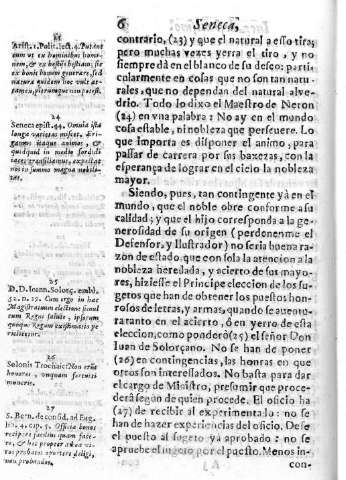 6 Seneca,
contrario, (23) y que el natural a esso tira;
pero muchas vezes yerra el tiro, y no
siempre dà en el blanco de su deseo: parti-
cularmente en cosas que no son tan natu-
rales, que no dependan del natural alve-
drio. Todo lo dixo el Maestro de Neron
(24) en vna palabra: No ay en el mundo
cosa estable, ni nobleza que persevere. Lo
que importa es disponer el animo, para
passar de carrera por sus baxezas, con la
esperança de lograr en el cielo la nobleza
mayor.
Siendo, pues, tan contingente yà en el
mundo, que el noble obre conforme a su
calidad; y que el hijo corresponda a la ge-
nerosidad de su origen (perdonenme el
Defensor, y Ilustrador) no seria buena ra-
zon de estado, que con sola la atencion a la
nobleza heredada, y acierto de sus mayo-
res, hiziesse el Principe eleccion de los su-
getos que han de obtener los puestos hon-
rosos de letras, y armas, quando se aventu-
ra tanto en el acierto, ò en yerro de esta
eleccion, como ponderò (25) el señor Don
Iuan de Solorçano. No se han de poner
(26) en contingencias, las honras en que
otros son interessados. No basta para dar
el cargo de Ministro, presumir que proce-
derà segun de quien procede. El oficio ha
(27) de recibir al experimentado: no se
han de hazer experiencias del oficio. Dese
el puesto al sugeto yà aprobado: no se
apruebe el sugeto por el puesto. Menos in-
con-
Arist. 1. Polit. lect. 4. Putant
enim ut ex hominibus homi-
nem, & ex bestijs bestiam, sic
ex bonis bonum generare, sed
natura quidem hoc vult qui-
24
Seneca epist. 44. Omnia ista
longa varietas miscet. Eri-
gamus itaque animos, &
quidquid in medio sordidi
iacet transiliamus, expectat
nos in summo magna nobili-
tas.
25
D. D. Ioann. Solorç. embl.
52. n. 19. Cum ergo in hac
Magistratuum electione simul
cum Regni salute, ipsorum
quoque Regum existimatio pe-
riclitetur.
26
Solonis Trochaic. Non erũt
honores unquam fortuiti
muneris.
27
S. Bern. de consid. ad Eug.
lib. 4. cap. 5. Officia bonos
recipere facilius quam face-
re, & hoc propter
probatos oportet deligi,
non probandos.